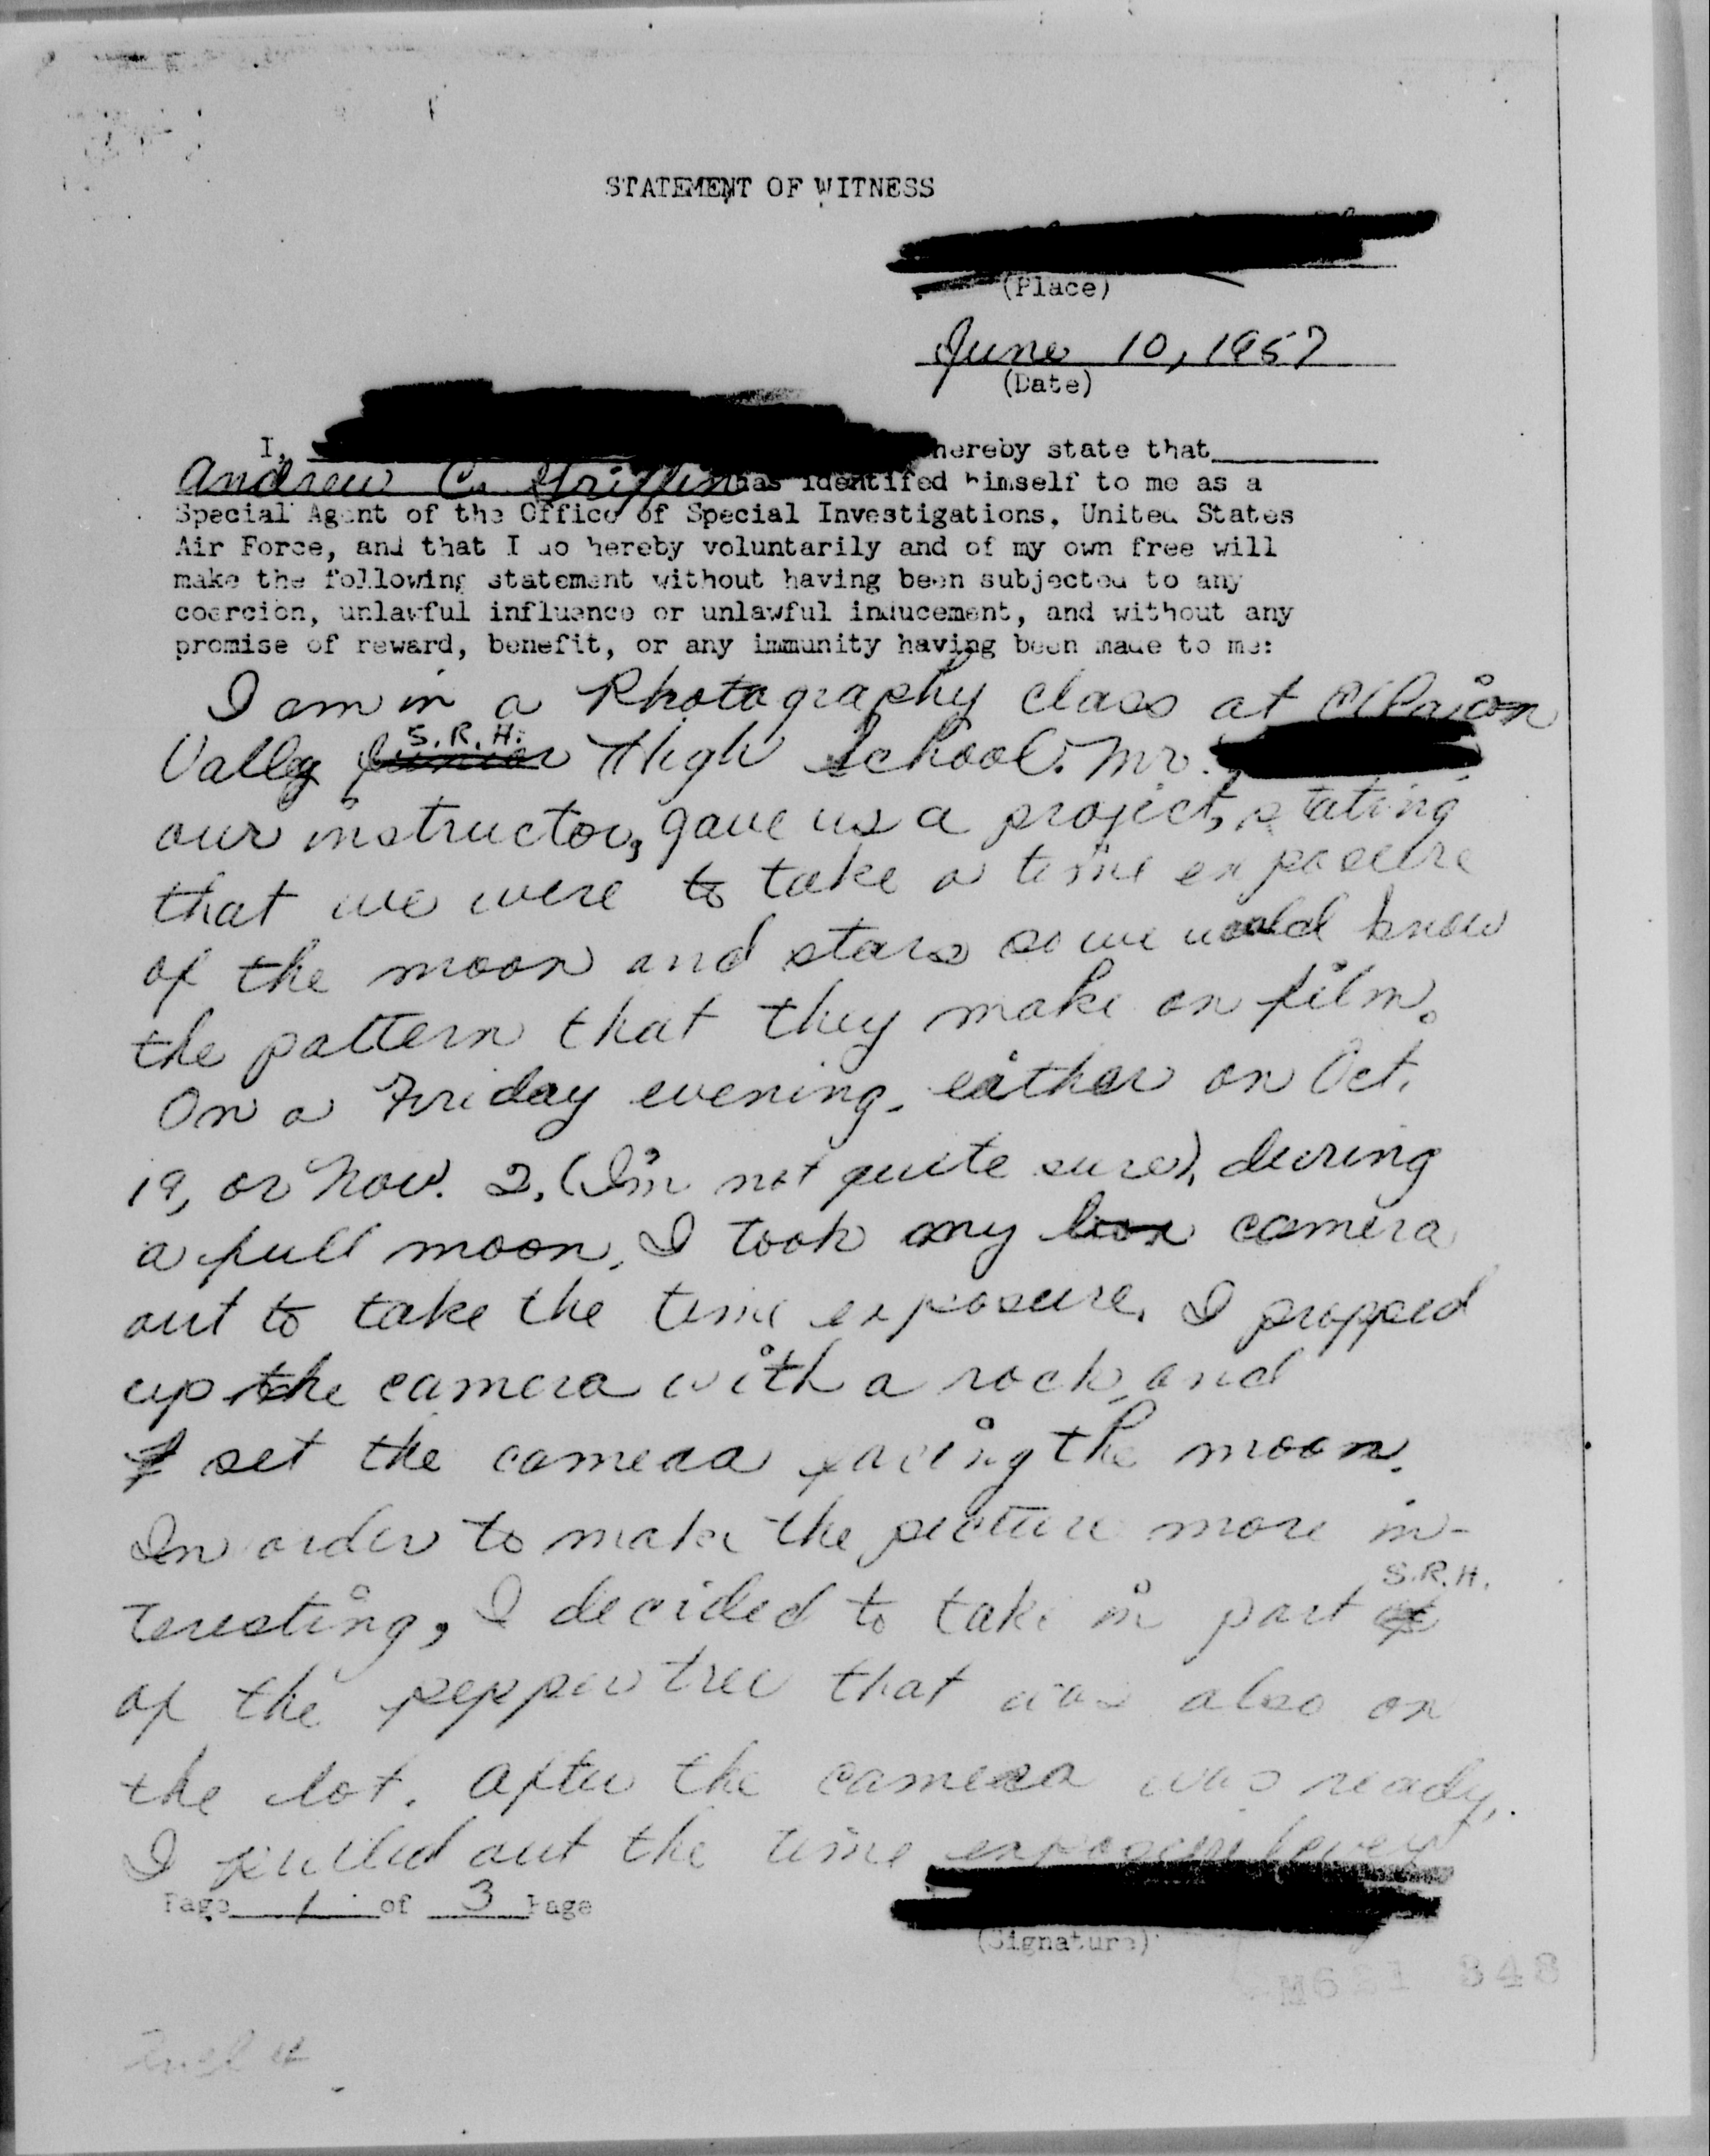 STATEMENT OF WITNESS
(Place)
June 10, 1957
(Date)
I, hereby state that
Andrew C. Griffin has identifed himself to me as a
Special Agent of the Office of Special Investigations, United States
Air Force, and that I do hereby voluntarily and of my own free will
make the following statement without having been subjected to any
coercion, unlawful influence or unlawful inducement, and without any
promise of reward, benefit, or any immunity having been made to me:
I am in a Photography class at
S.R.H.
Vally Junior High School. Mr.
our instructor, gave us a project, stating
that we were to take a time exposure
of the moon and stars so we would know
the pattern that they make on film.
On a Friday evening, either on Oct.
19, or Nov. 2, (I'm not quite sure), during
a full moon, I took my box camera
out to take the time exposure. I propped
up the camera with a rock, and
I set the camera facing the moon.
In order to make the picture more in-
S.R.H.
teresting, I decided to take in part
of the pepper tree that was also on
the lot. After the camera was ready,
I pulled out the time exposure lever
Page 1 of 3 Page
(Signature)
848
Incl 4